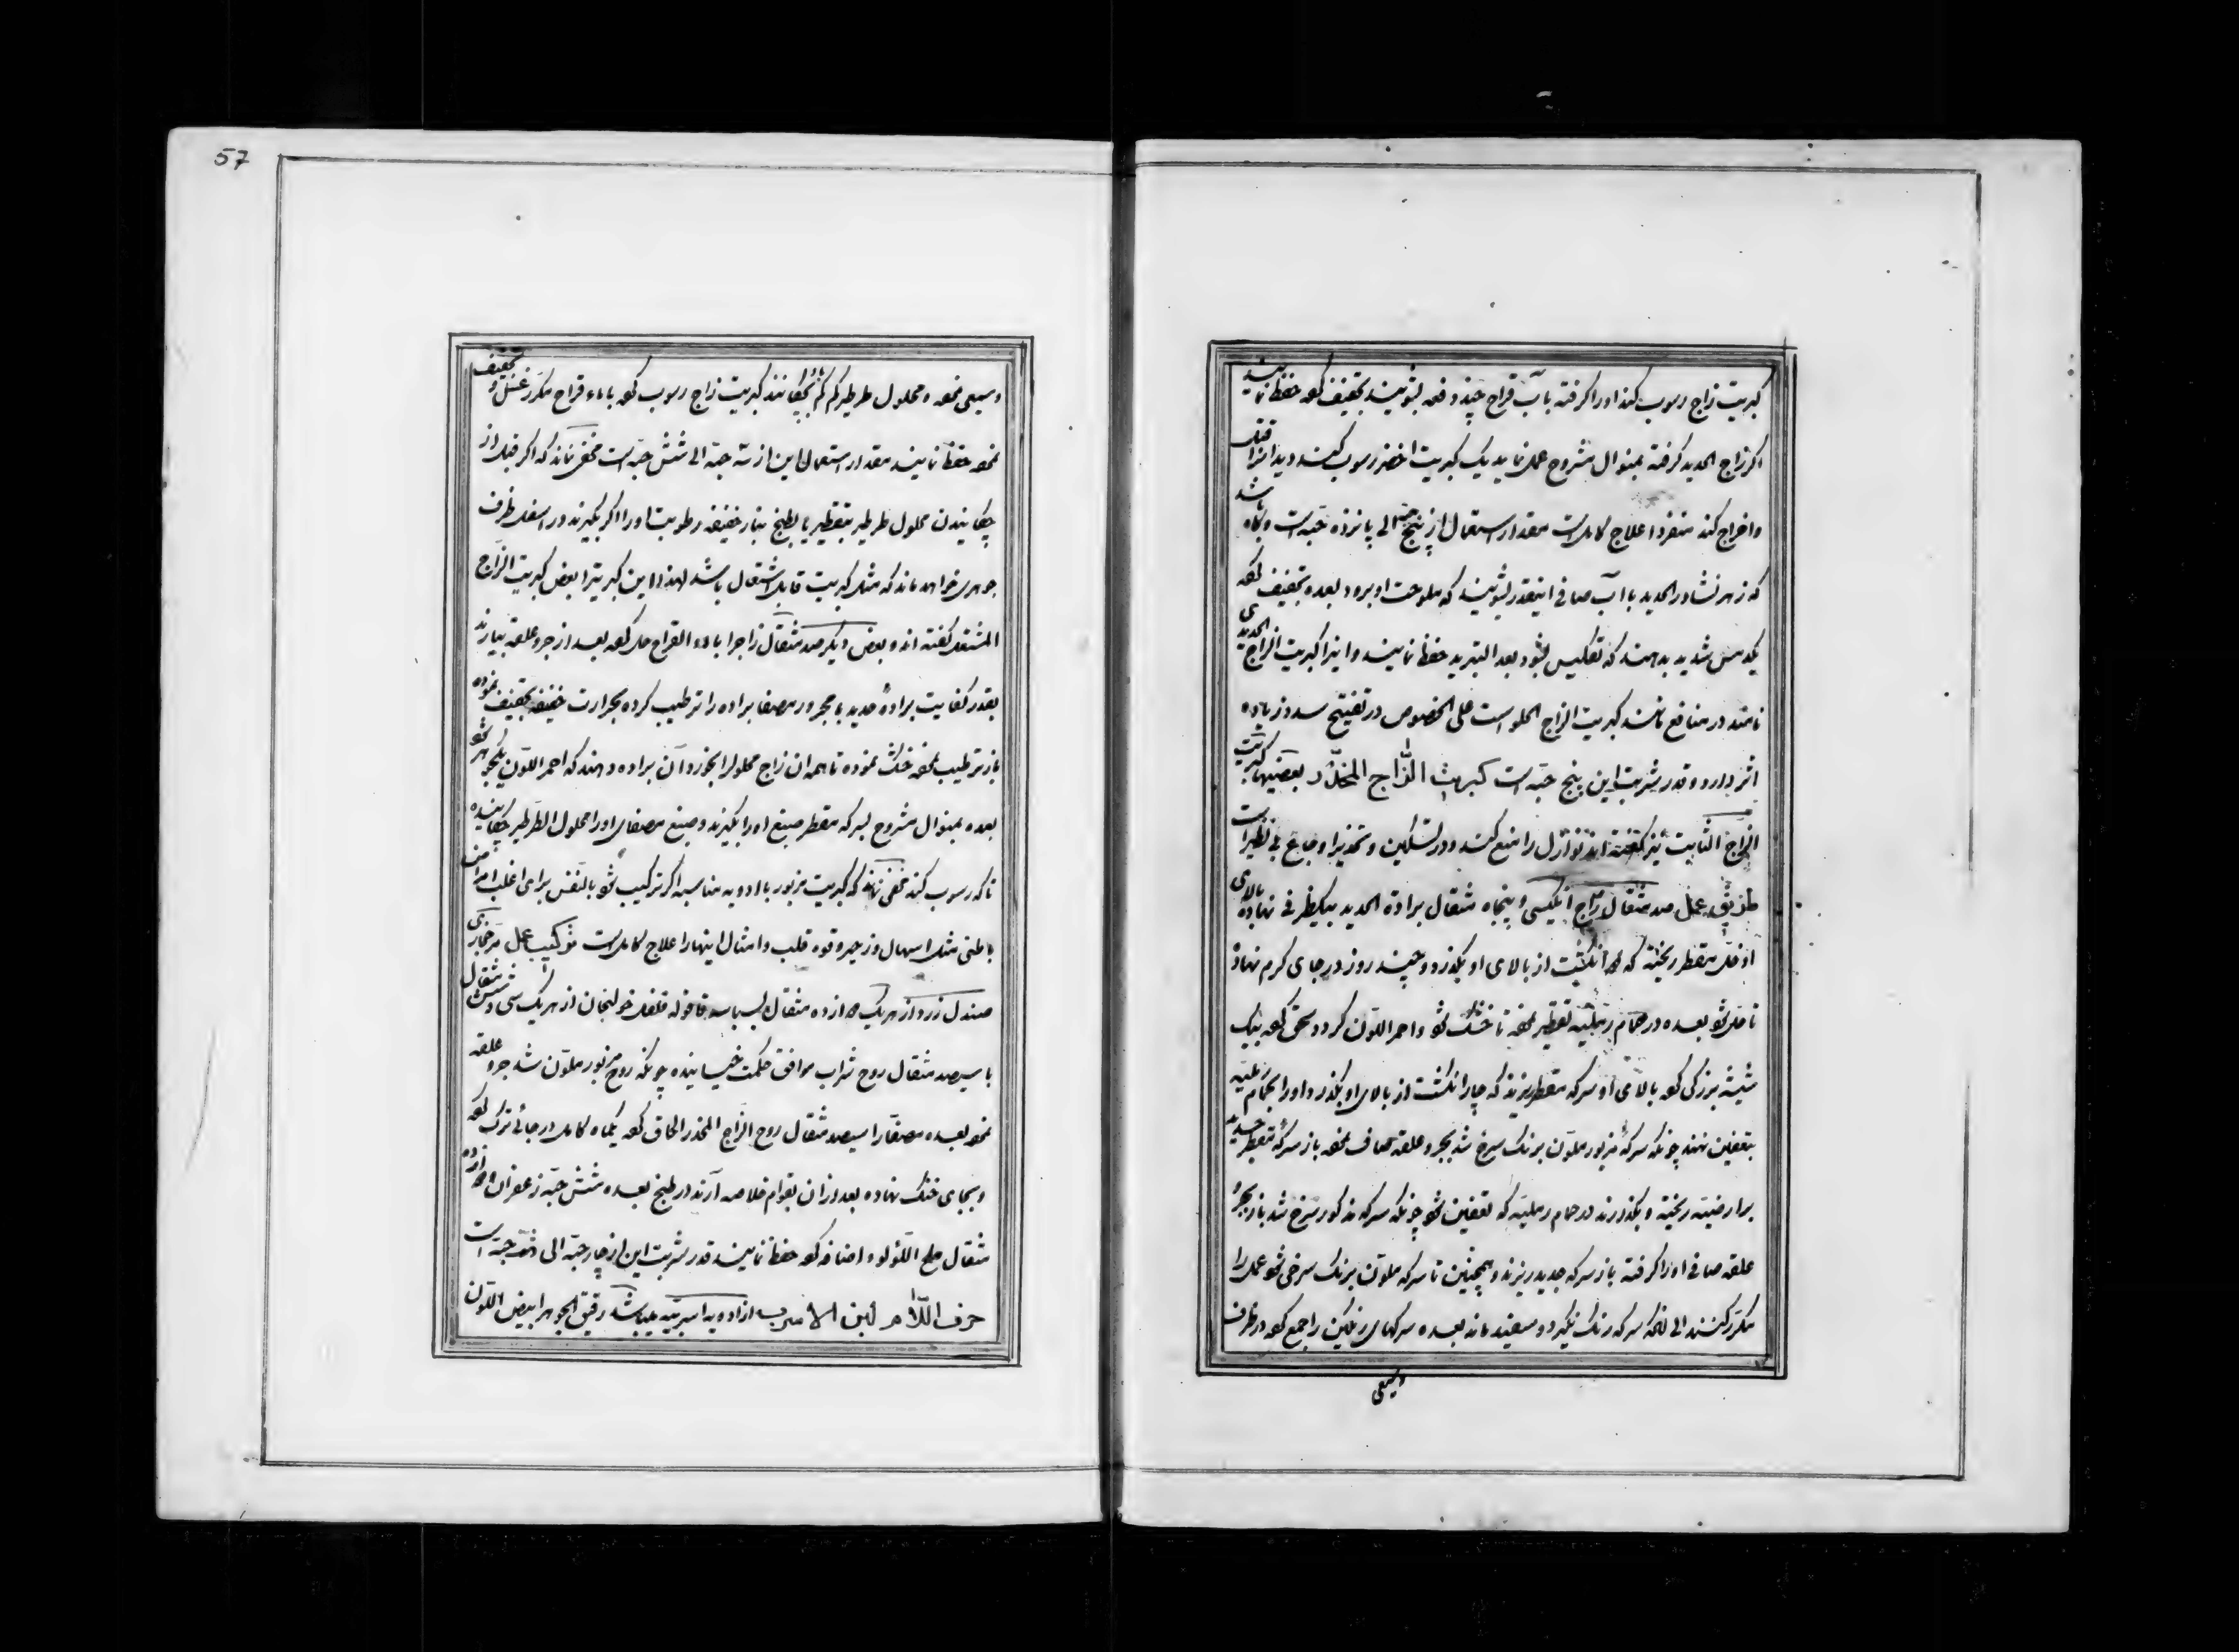 کبریت زاج رسوب کند او را کرفته با آب قراح چند دفعه بشویند تجفیف کرده حفظ نمایند
اکر زاج الحدید کرفته بمنوال مشروح عمل نماید یک کبریت اخضر رسوب کند دیدانرا قتل
و اخراج کند منفردا علاج کاملست مقدار استعمال از پنج حبه الی پانزده حبه است و کاه باشد
که زهر نشادر الحدید با آب صافی اینقدر بشویند که ملوحت او برود بعده تجفیف کرده
یکدمس شدید بدهند که تکلیس شود بعد التبرید حفظ نمایند و اینرا کبریت الزاج الحدیدی
نامند در منافع مانند کبریت الزاج الحلو است علی الخصوص در تفتیح سدد زیاده
اثر دارد و قدر شربت این پنج حبه است کبریت الزاج المخدر بعضیها کبریت
الزاج الثابت نیز کفته اند نوازل را منع کند و در تسکین و تخدیر اوجاع بی نظیر است
طریق عمل صد مثقال زاج انکلیسی و پنجاه مثقال برادة الحدید بیکظرفی نهاده بالای
او خل مقطر ریخته که انکشت از بالای او بکذرد و چند روز در جای کرم نهاده
تا حل شود بعده در حمام رملیه تقطیر نموده تا خشک شود و احمر اللون کردد سحق کرده بیک
شیشه بزرکی کرده بالای او سرکه مقطر ریزند که چار انکشت از بالای او بکذرد و او را بحمام رملیه
بتعفین نهند چونکه سرکه مزبور ملون برنک سرخ شد بجر و علقه صاف نموده باز سرکه مقطر جدید
بر ارضیته ریخته و بکذارند در حمام رملیه که تعفین شود چونکه سرکه مذکور سرخ شد باز بجر و
علقه صافی او را کرفته باز سرکه جدید ریزند و همچنین تا سرکه ملون برنک سرخی شود عمل را
مکرر کنند الی آنکه سرکه رنک نکیرد و سفید ماند بعده سرکهای رنکین را جمع کرده در ظرف
وسیعی
57
وسیعی نموده و محلول طرطیر کم کم باو بچکانند کبریت زاج رسوب کرده با ماء قراح مکرر غسل و تجفیف
نموده حفظ نمایند مقدار استعمال این از سه حبه الی شش حبه است مخفی نماند که اکر قبل از
چکانیدن محلول طرطیر بتقطیر یا بطبخ بنار خفیفه رطوبت او را اکر بکیرند در اسفل ظرف
جوهری خواهد ماند که مثل کبریت قابل اشتعال باشد لهذا این کبریترا بعض کبریت الزاج
المشتعل کفته اند و بعض دیکر صد مثقال زاجرا با ماء القراح حل کرده بعد از جر و علقه بیارند
بقدر کفایت برادهٔ حدید با مجرور مصفا براده را ترطیب کرده بحرارت خفیفه تجفیف نموده
باز ترطیب نموده خشک نموده تا همه ان زاج محلولرا بخورد آن براده دهند که احمر اللون یکجوهر شود
بعده بمنوال مشروح بسرکه مقطر صبغ او را بکیرند و صبغ مصفای او را محلول الطرطیر چکانیده
تا که رسوب کند مخفی نماند که کبریت مزبور با ادویه مناسبه اکر ترکیب شود بالنفس برای اغلب امراض
باطنی مثل اسهال و زحیر و قوه قلب و امثال اینها را علاج کاملست
صندل زرد از هریک ده مثقال بسباسه قاقوله قلفل خولنجان از هریک سی و شش مثقال
با سیصد مثقال روح شراب موافق حکمت خیسانیده چونکه روح مزبور ملون شد جر و علقه
نموده بعده مصفا را سیصد مثقال روح الزاج المخدر الحاق کرده یکماه کامل در جائی ترک کرده
و بجای خنک نهاده بعد ازان بقوام خلاصه آرند در طبخ بعده شش حبه زعفران
مثقال ملح اللؤلوء اضافه کرده حفظ نمایند قدر شربت این از چار حبه الی هشت حبه است
حرف اللام لبن الاسرب از ادویه اسربیه میباشد رقیق الجوهر ابیض اللون